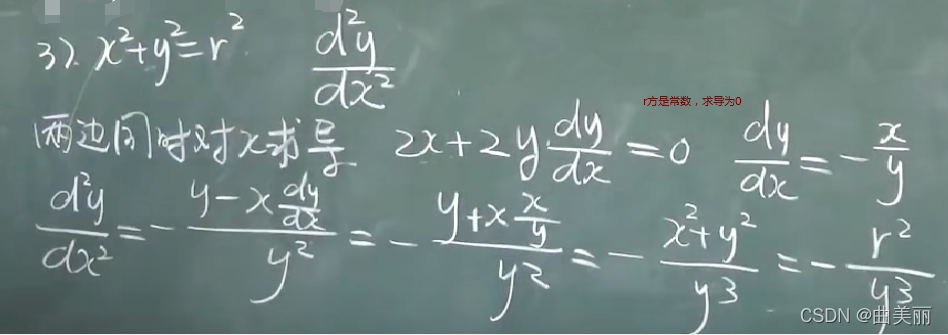 3). x²+y²=r² d²y/dx²
r方是常数，求导为0
两边同时对x求导 2x+2y dy/dx=0 dy/dx=-x/y
d²y/dx²=-(y-x dy/dx)/y²=-(y+x x/y)/y²=-(x²+y²)/y³=-r²/y³
CSDN @曲美丽